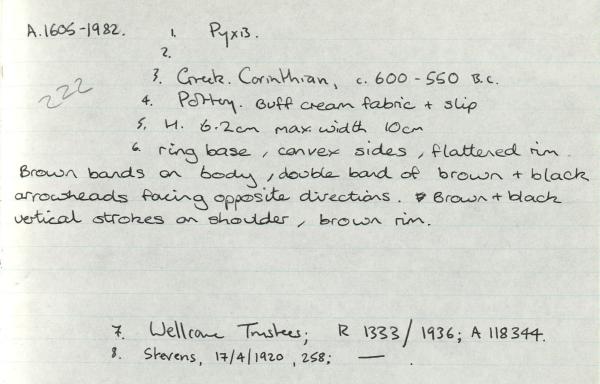 A.1605-1982. 1. Pyxis.
2.
222
3. Greek. Corinthian, c. 600-550 B.C.
4. Pottery. Buff cream fabric + slip
5. H. 6.2cm max width 10cm
6. ring base, convex sides, flattered rim.
Brown bands on body, double band of brown + black
arrowheads facing opposite directions. Brown + black
vertical strokes on shoulder, brown rim.
7. Wellcome Trustees; R 1333/1936; A 118344.
8. Stevens, 17/4/1920, 258; — .